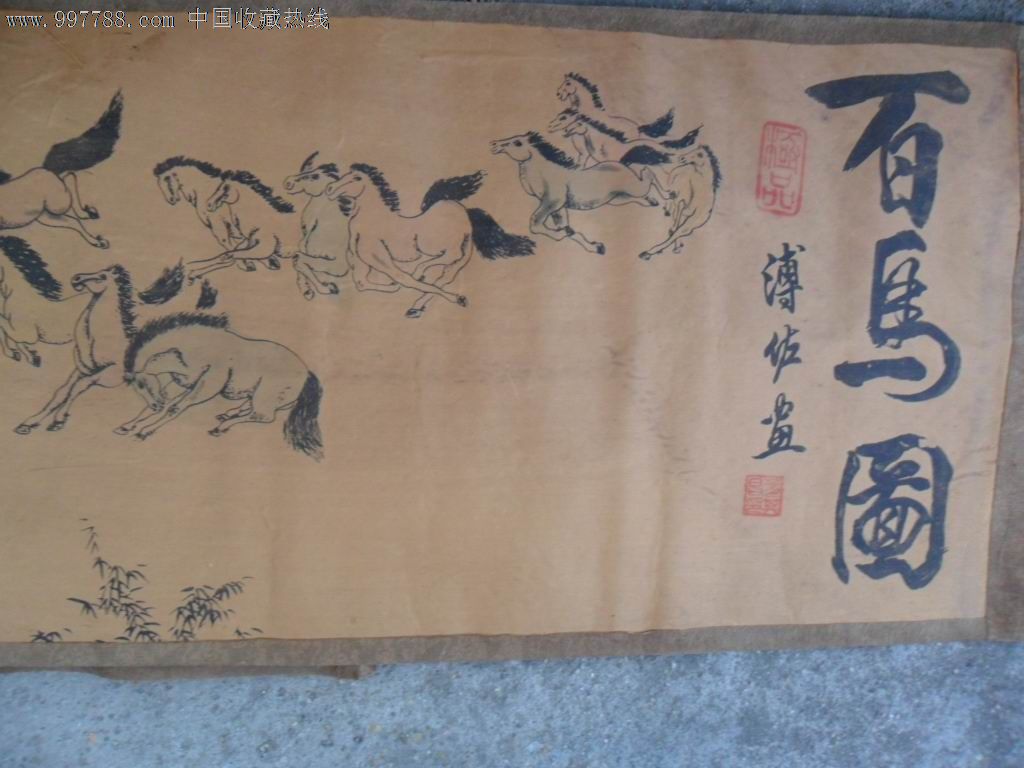 www.997788.com 中国收藏热线
百馬圖
溥佐画
極品